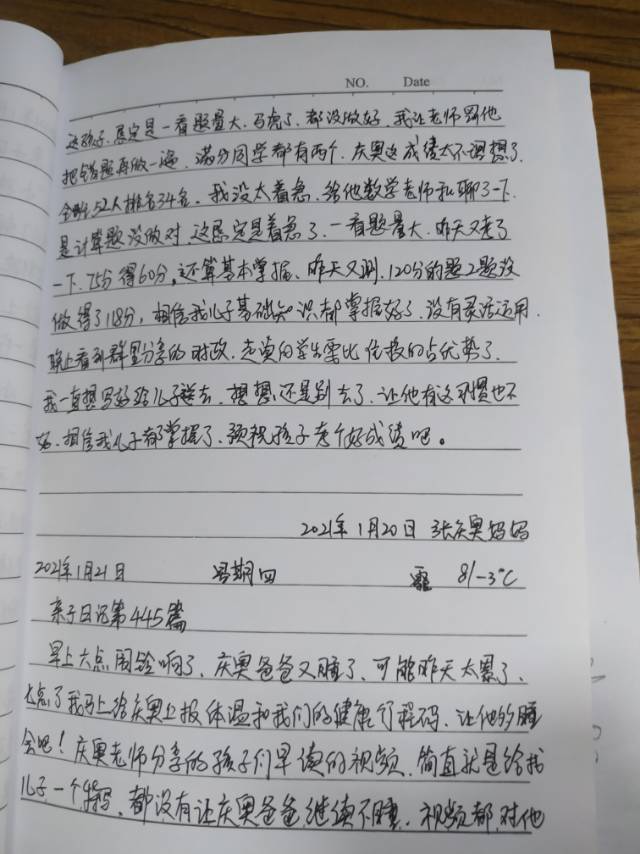 NO. Date
这孩子,肯定是一看题量大,马虎了,都没做好,我让老师罚他
把错题再做一遍,满分同学都有两个,庆奥这成绩太不理想了,
全班52人排名34名。我没太着急,给他数学老师私聊了一下,
是计算题没做对,这肯定是着急了,一看题量大,昨天又考了
一下,75分得60分,还算基本掌握,昨天又测,120分的题2题没
做得了118分,相信我儿子基础知识都掌握好了,没有灵活运用,
晚上看到群里分享的时政,走读的学生需比住校的占优势了,
我一直想写好给儿子送去,想想还是别去了,让他有这习惯也不
好,相信我儿子都掌握了,预祝孩子考个好成绩吧。
2021年1月20日 张庆奥妈妈
2021年1月21日 星期四 8/-3℃
亲子日记第445篇
早上六点闹铃响了,庆奥爸爸又睡了,可能昨天太累了,
七点了我马上给庆奥上报体温和我们的健康行程码,让他多睡
会吧!庆奥老师分享的孩子们早读的视频,简直就是给我
儿子一个特写,都没有让庆奥爸爸继续不睡,视频都对他